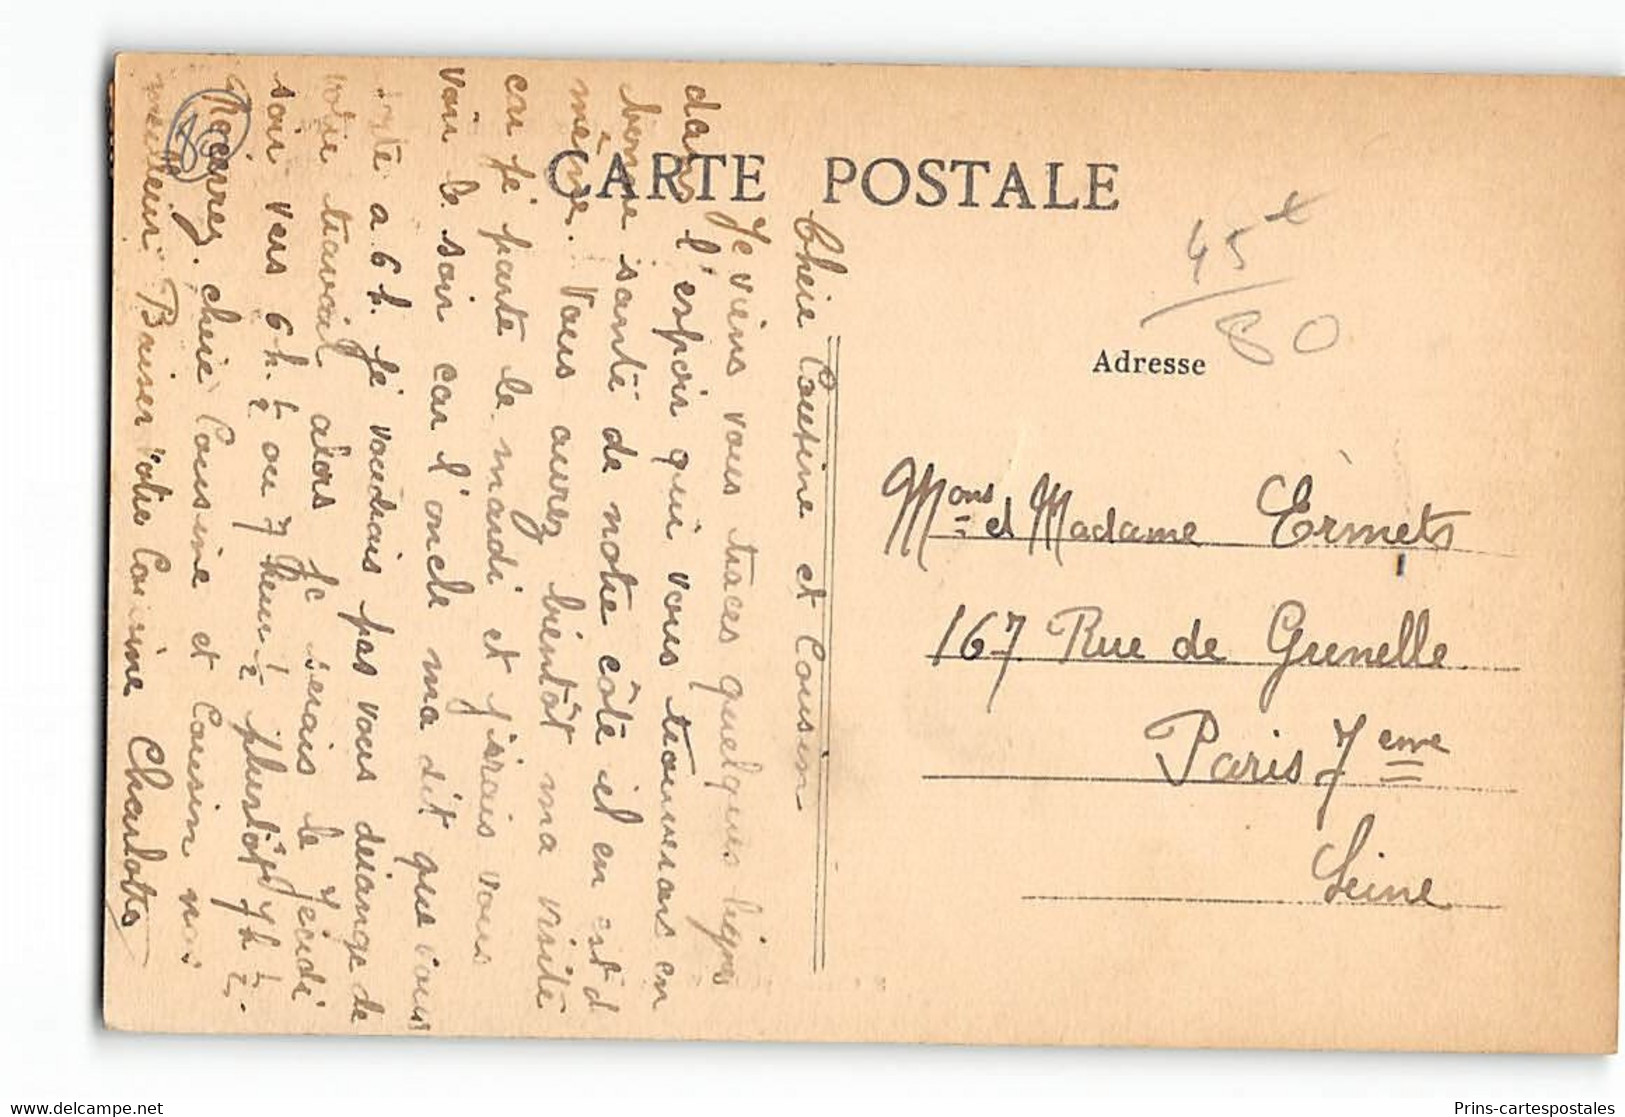 CARTE POSTALE
Adresse
45 t
80
Mons et Madame Ermets
167 Rue de Grenelle
Paris 7eme
Seine
Chère Cousine et Cousin
Je viens vous traces quelques lignes
dans l'espoir qui vous trouveras en
bonne santé de notre côté il en est d
même. Vous aurez bientôt ma visite
car je parte le mardi et j'irais vous
voir le soir car l'oncle ma dit que vous
à 6 h. je voudrais pas vous déiange de
votre travail alors je serais le Jeudi
soir vers 6 h. 1/2 ou 7 heur 1/2 plustôt 7h 1/2.
Recevrez chère Cousine et Cousin nos
meilleur Baiser Votre Cousine Charlotte
80
delcampe.net
Prins-cartespostales